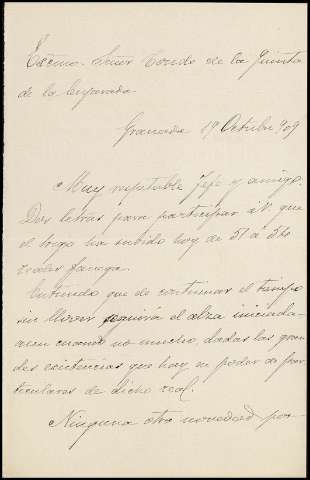 Excmo. Señor Conde de la Quinta
de la Enjarada
Granada 19 Octubre 909
Muy respetable Jefe y amigo.
Dos letras para participar á V. que
el trigo ha subido hoy de 51 á 56
reales fanega.
Entiendo que de continuar el tiempo
sin llover seguirá el alza iniciada
aun cuando no mucho, dadas las gran
des existencias que hay en poder de par
ticulares de dicho
Ninguna otra novedad por